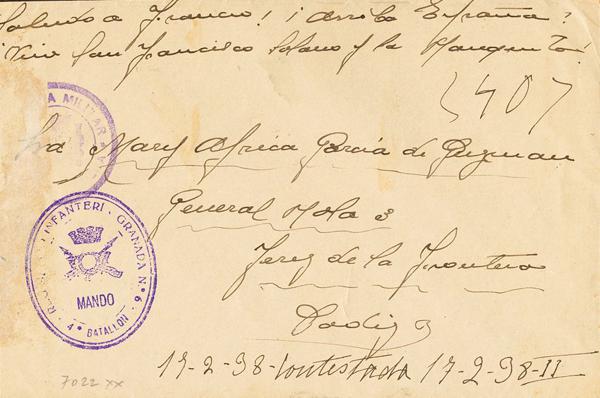 Saludo a Franco! ¡Arriba España!
¡Viva San Francisco Solano y la
2407
A MILITAR
Mary Africa Garcia de Guzman
General Mola 3
Jerez de la Frontera
Cadiz
INFANTERI · GRANADA Nº 6 ·
MANDO
4º BATALLON
17-2-38-Contestada 17-2-38-II
7022 xx